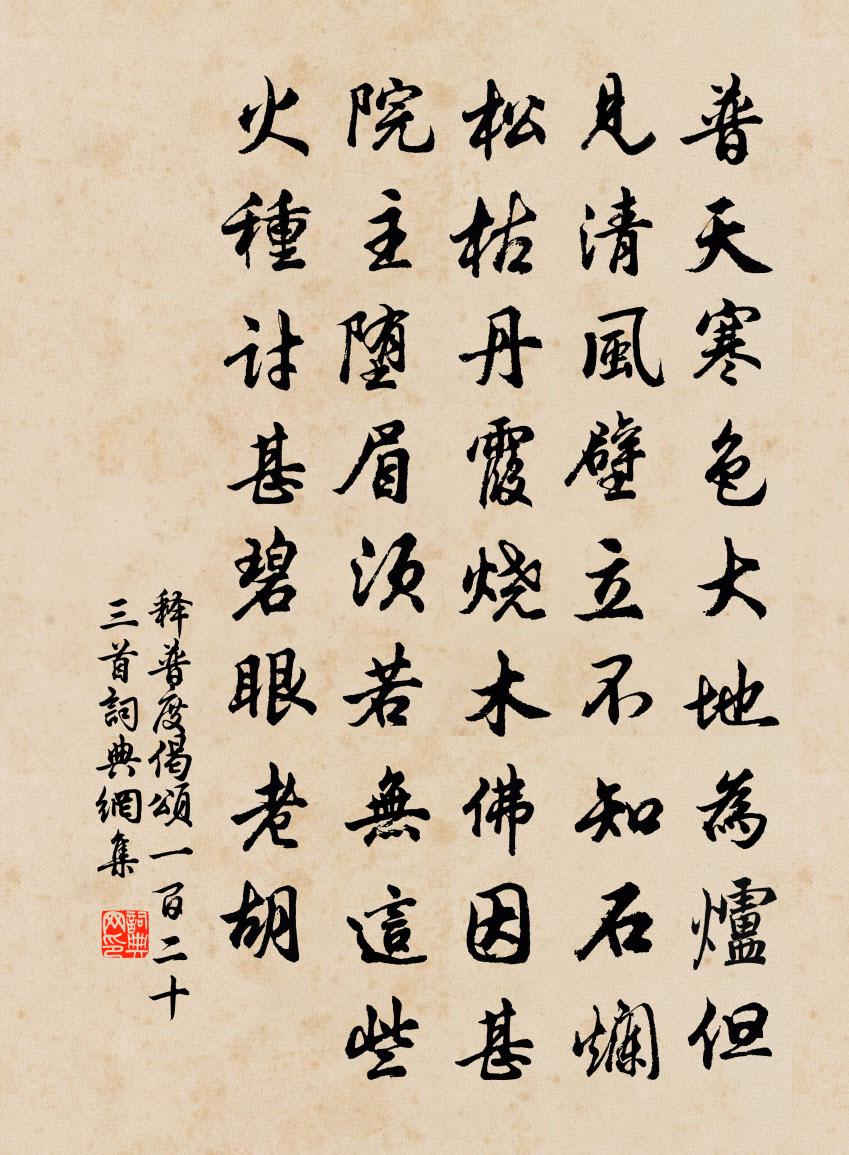 普天寒色大地為爐但
見清風壁立不知石爛
松枯丹霞烧木佛因甚
院主堕眉须若無這些
火種討甚碧眼老胡
释普度偈頌一百二十
三首詞典網集
詞典网印